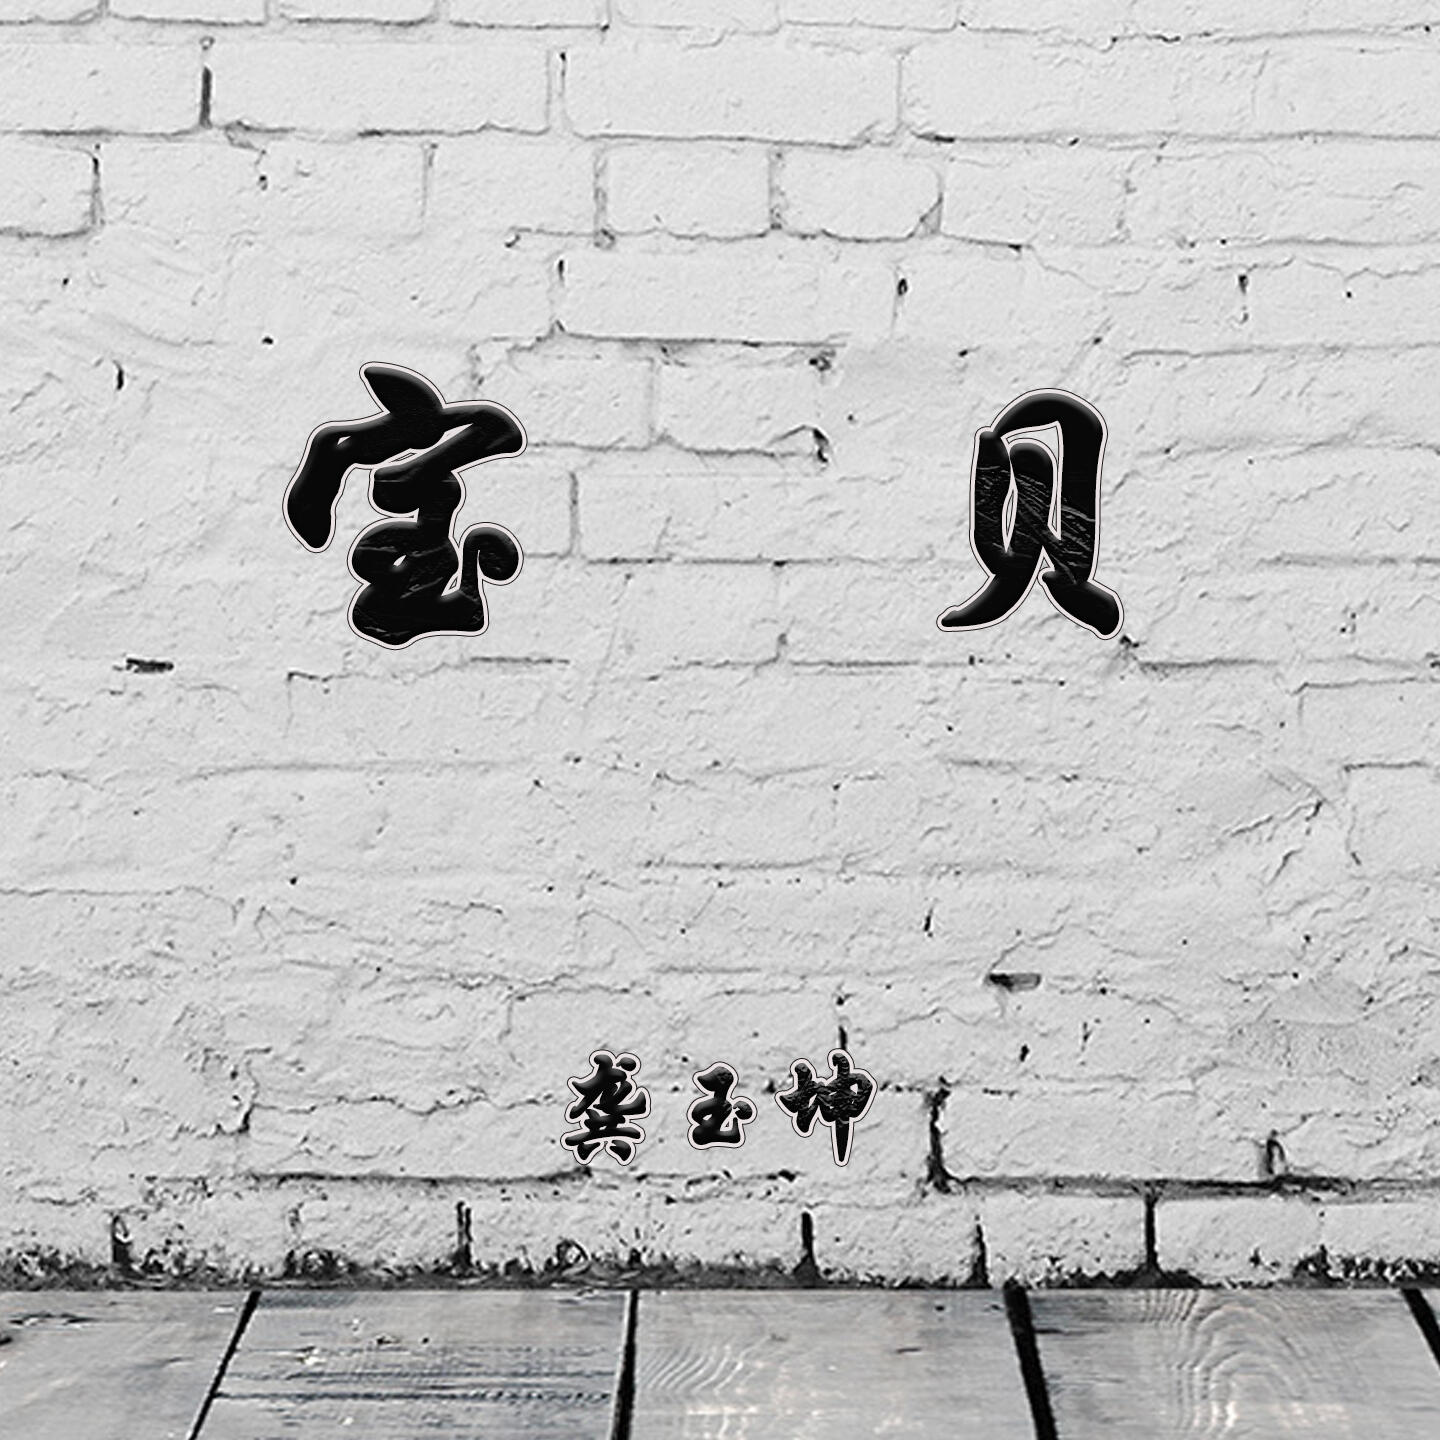 宝贝
龚玉坤